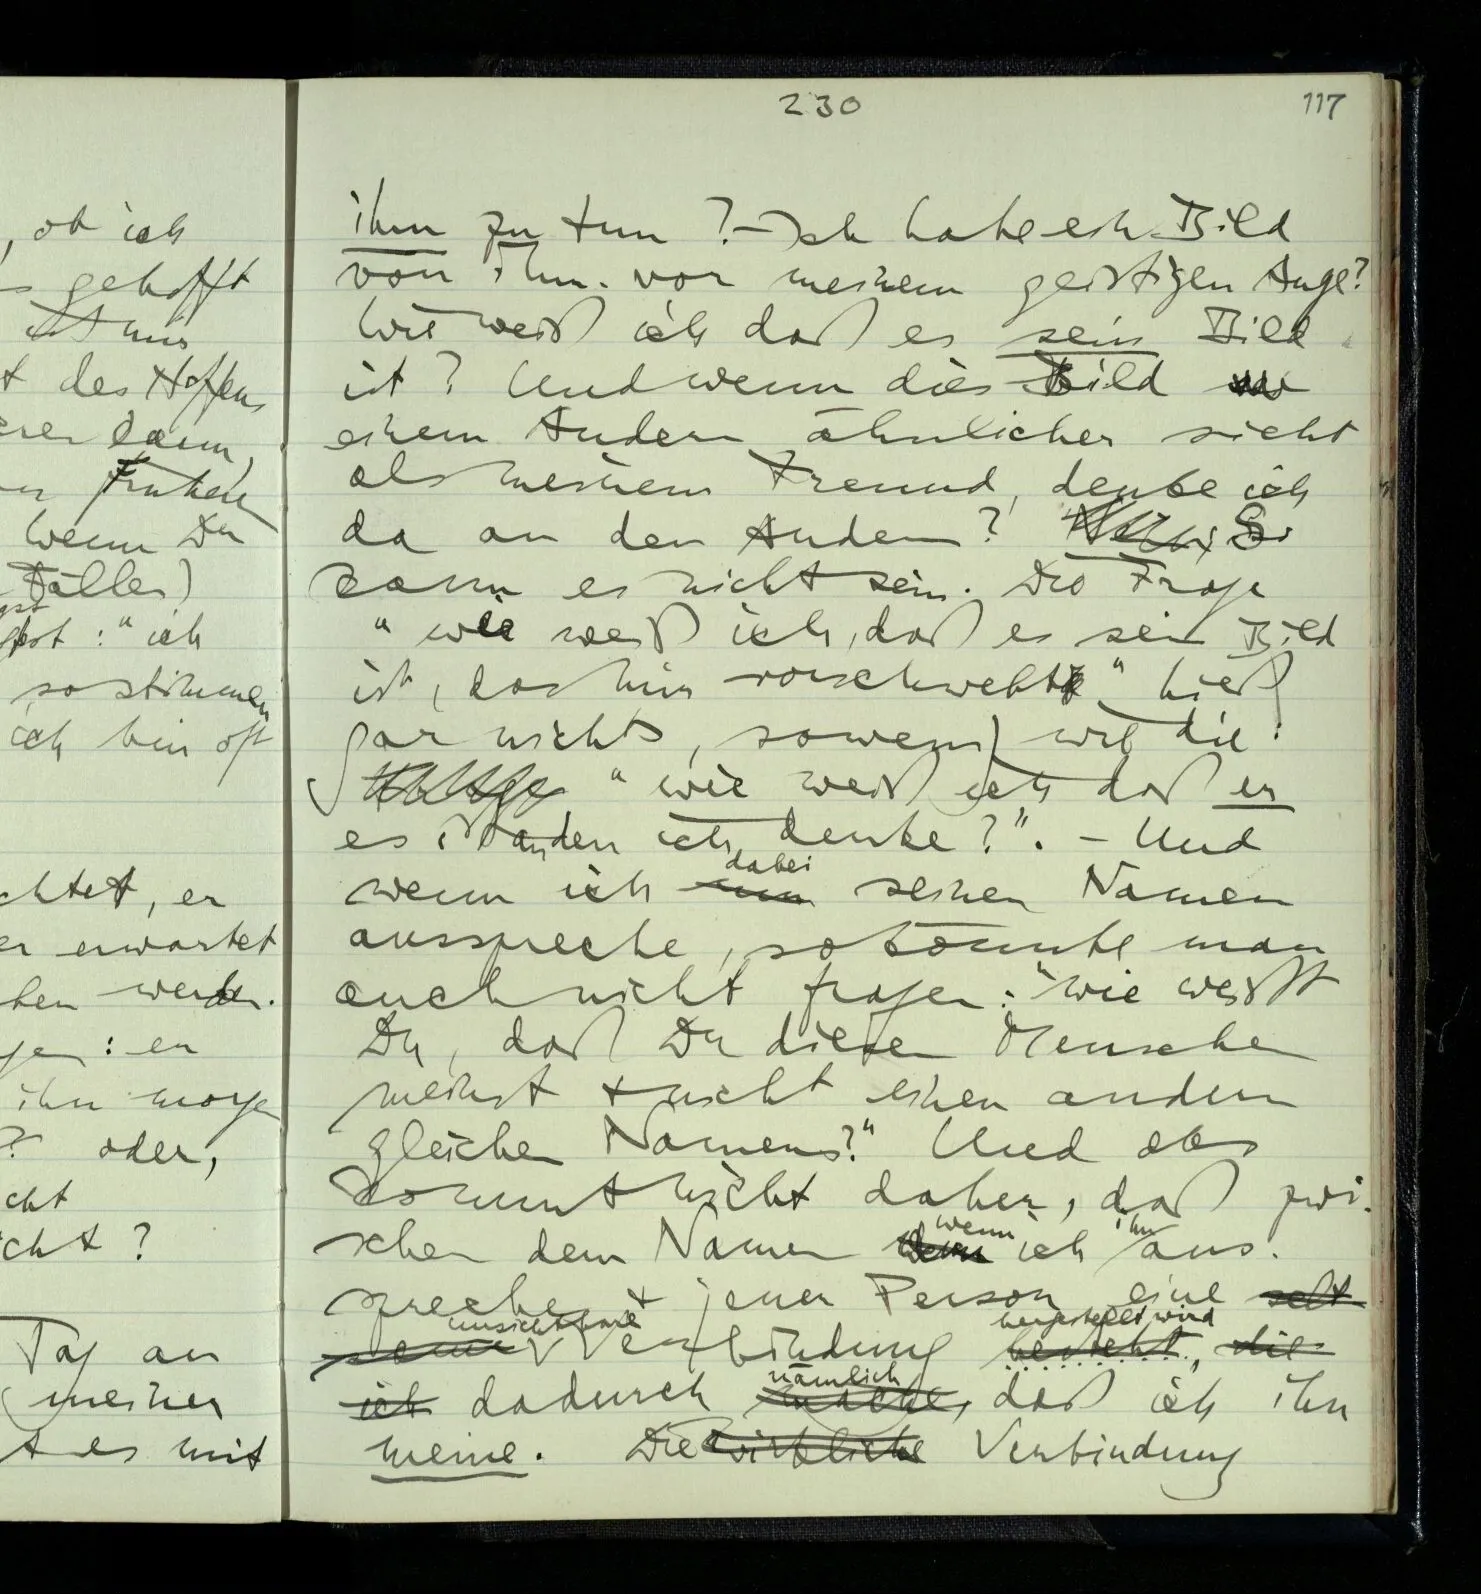 , ob ich
gehofft
ist nur
t des Hoffens
erer kann,
Frühern
wenn Du
Fälle)
ich
so stimmen
ich bin oft
chtet, er
er erwartet
ben werde.
gen: er
ihn morgen
? oder,
cht
cht?
Tag an
meiner
t es mit
230
117
ihm zu tun? – Ich habe ein Bild
von ihm vor meinem geistigen Auge?
Wie weiß ich daß es sein Bild
ist? Und wenn dies Bild
einem Andern ähnlicher sieht
als meinem Freund, denke ich
da an den Andern? So
kann es nicht sein. Die Frage
"wie weiß ich, daß es sein Bild
ist, das mir vorschwebt" hieß
gar nichts, sowenig wie die:
"wie weiß ich daß er
es ist an den ich denke?". – Und
wenn ich dabei seinen Namen
ausspreche, so könnte man
auch nicht fragen: "wie weißt
Du, daß Du diesen Menschen
meinst + nicht einen andern
gleichen Namens?" Und das
kommt nicht daher, daß zwi-
schen dem Namen wenn ich ihn aus-
spreche + jener Person eine selt
same unsichtbare Verbindung besteht hergestellt wird, die
ich dadurch nämlich mache, daß ich ihn
meine. Die wirkliche Verbindung